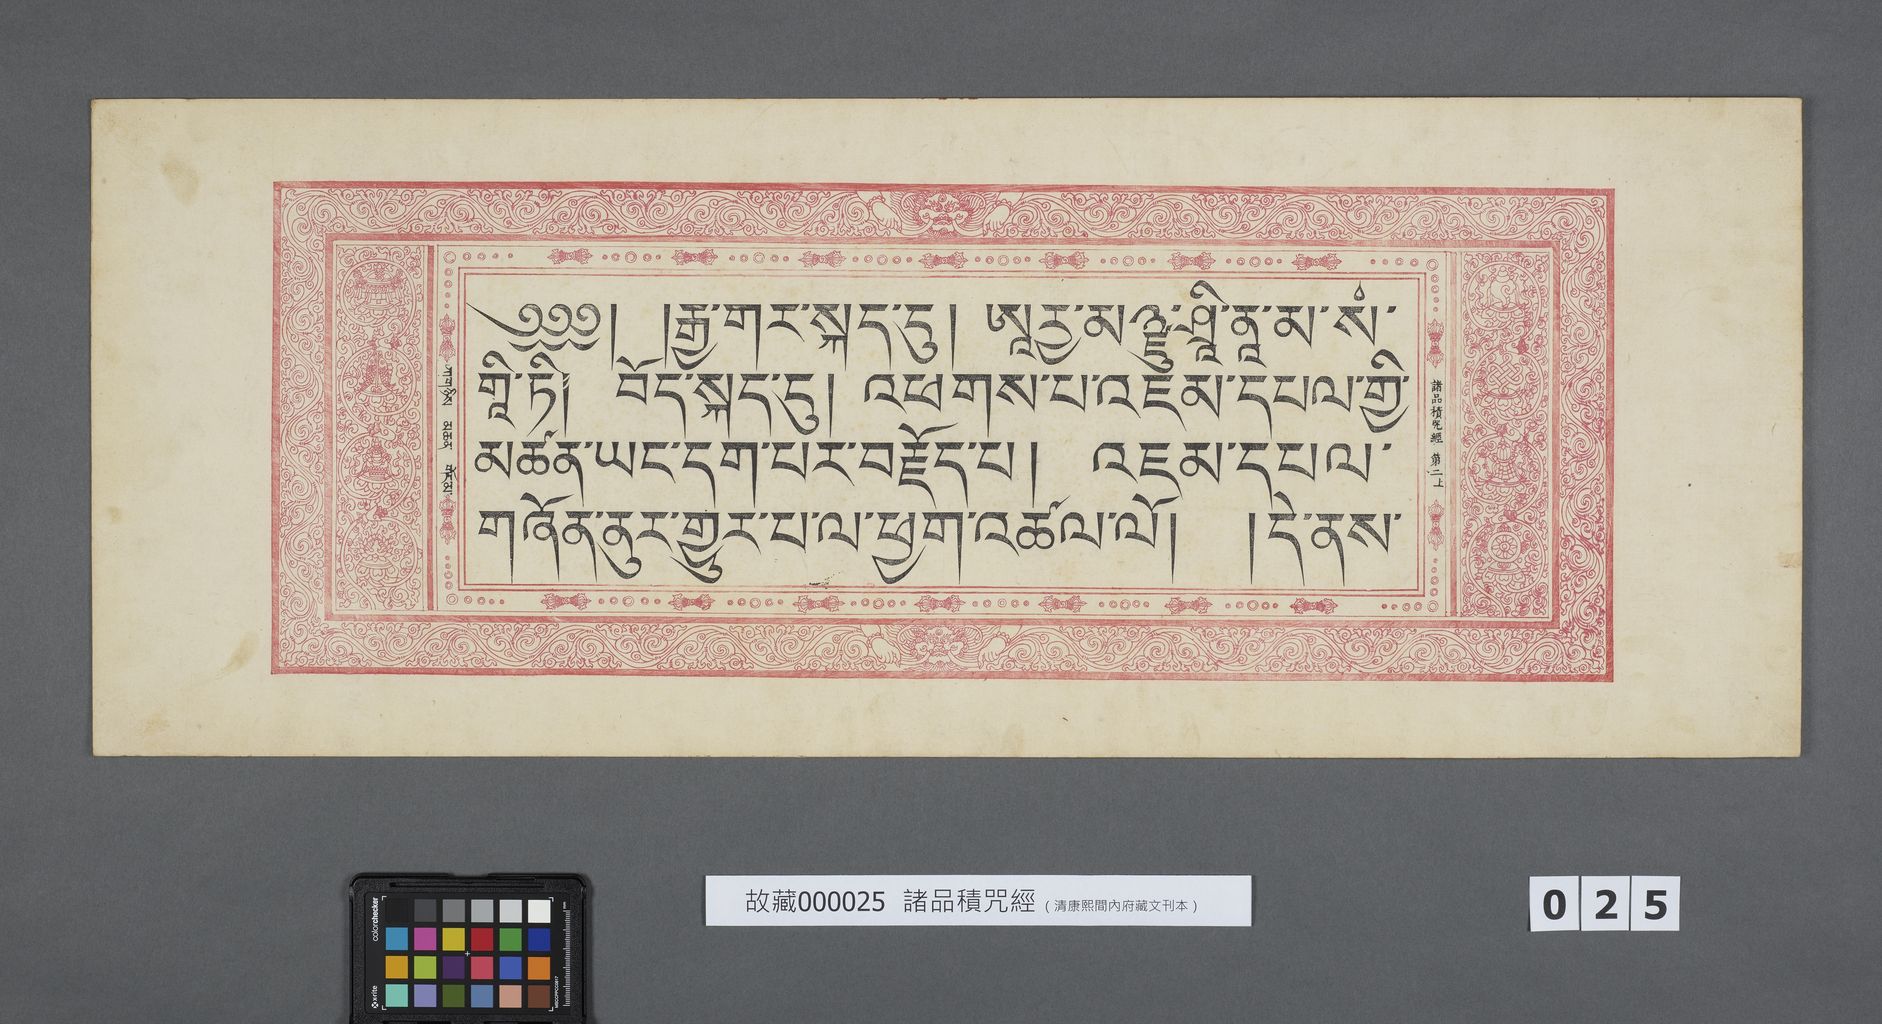 ༄༅༅། །རྒྱ་གར་སྐད་དུ། ཨཱརྱ་མཉྫུ་ཤྲཱི་ནཱ་མ་སཾ་
གཱི་ཏི། བོད་སྐད་དུ། འཕགས་པ་འཇམ་དཔལ་གྱི་
མཚན་ཡང་དག་པར་བརྗོད་པ། འཇམ་དཔལ་
གཞོན་ནུར་གྱུར་པ་ལ་ཕྱག་འཚལ་ལོ། །དེ་ནས་
諸品積咒經 第二上
故藏000025 諸品積咒經 (清康熙間內府藏文刊本)
025
colorchecker
x-rite